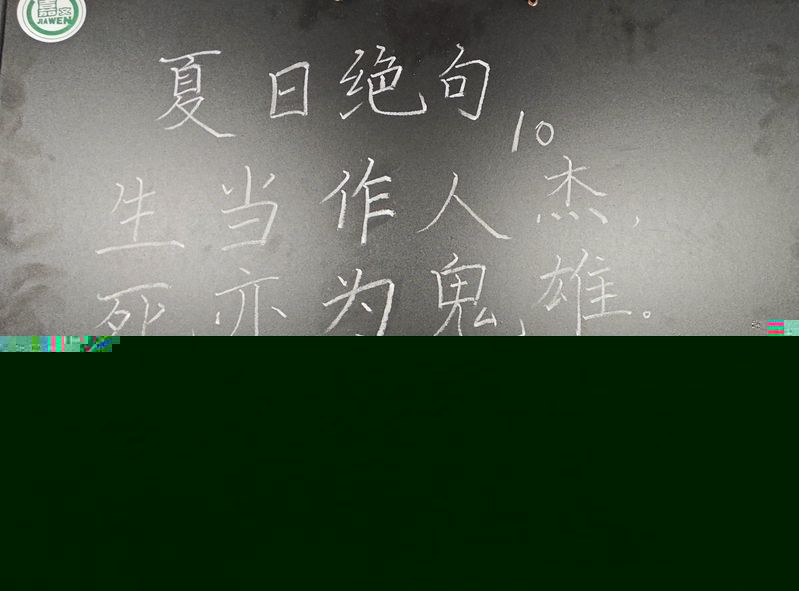 嘉文
JIAWEN
夏日绝句
10
生当作人杰，
死亦为鬼雄。